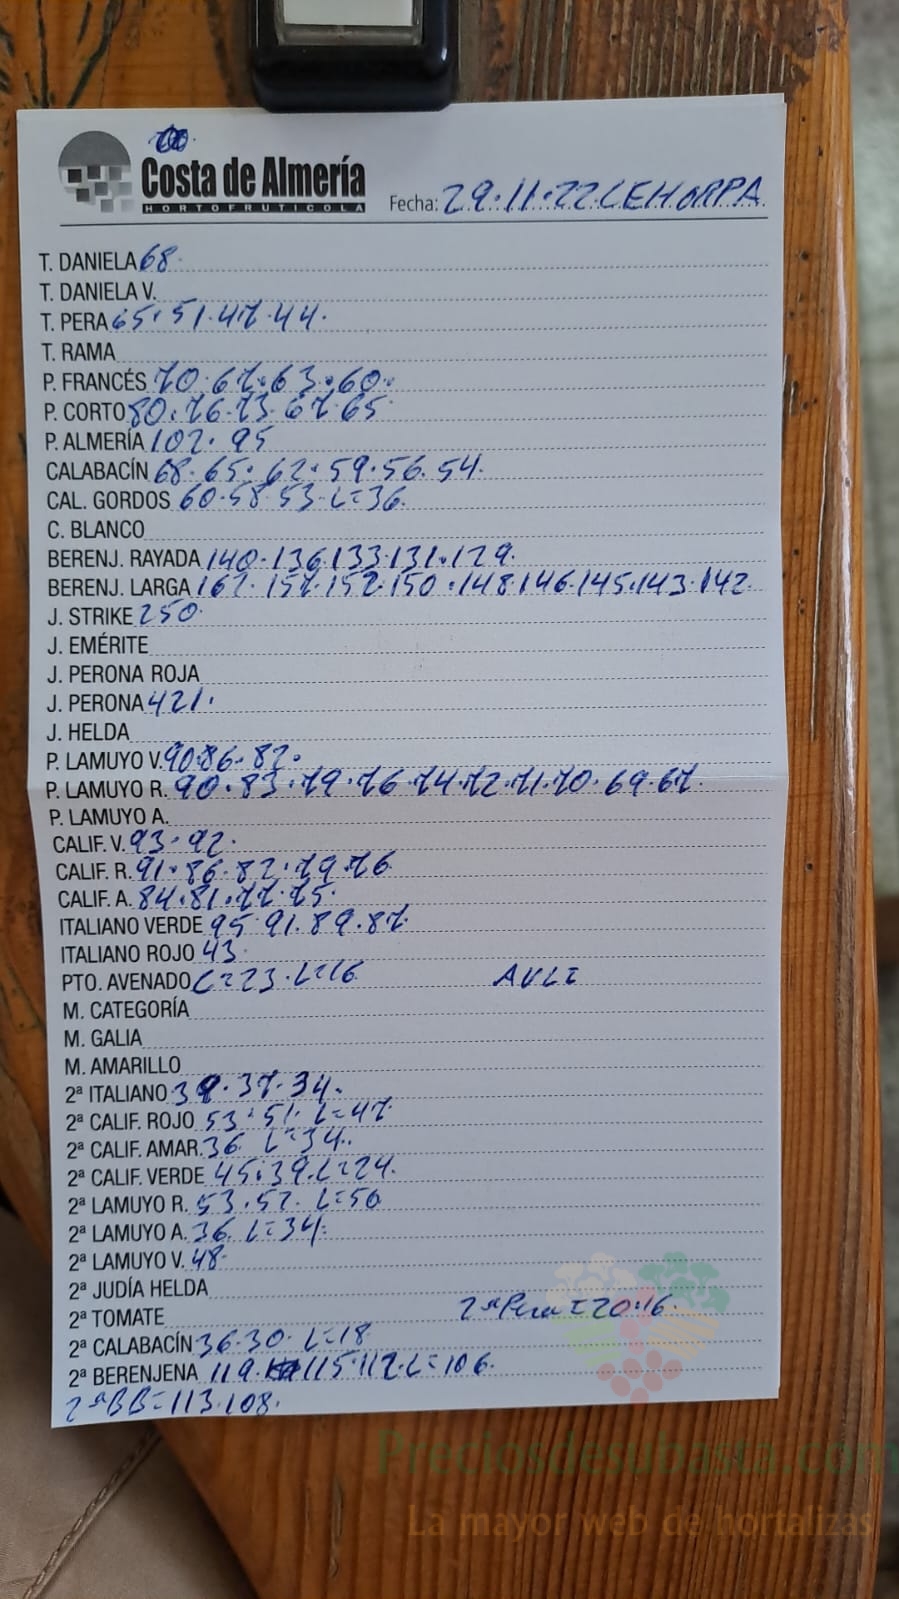 Costa de Almería
HORTOFRUTICOLA
Fecha: 29.11.22 CEHORPA
T. DANIELA 68
T. DANIELA V.
T. PERA 65.51.47.44.
T. RAMA
P. FRANCÉS 70.67.63.60.
P. CORTO 80.76.73.67.65
P. ALMERÍA 102.95
CALABACÍN 68.65.62.59.56.54.
CAL. GORDOS 60.58.53.L=36.
C. BLANCO
BERENJ. RAYADA 140.136.133.131.129.
BERENJ. LARGA 162.157.152.150.148.146.145.143.142
J. STRIKE 250
J. EMÉRITE
J. PERONA ROJA
J. PERONA 421.
J. HELDA
P. LAMUYO V. 90.86.82.
P. LAMUYO R. 90.83.79.76.74.72.71.70.69.67.
P. LAMUYO A.
CALIF. V. 93.92.
CALIF. R. 91.86.82.79.76
CALIF. A. 84.81.77.75.
ITALIANO VERDE 95.91.89.87
ITALIANO ROJO 43
PTO. AVENADO C=23.L=16
M. CATEGORÍA
M. GALIA
M. AMARILLO
2ª ITALIANO 37.34.
2ª CALIF. ROJO 53.51.L=47
2ª CALIF. AMAR. 36 L=34.
2ª CALIF. VERDE 45.39.L=24.
2ª LAMUYO R. 53.52.L=50
2ª LAMUYO A. 36.L=34.
2ª LAMUYO V. 48
2ª JUDÍA HELDA
2ª TOMATE 2ª Pera=20.16.
2ª CALABACÍN 36.30.L=18
2ª BERENJENA 119.115.112.L=106.
2ªBB=113.108.
Preciosdesubasta.com
La mayor web de hortalizas